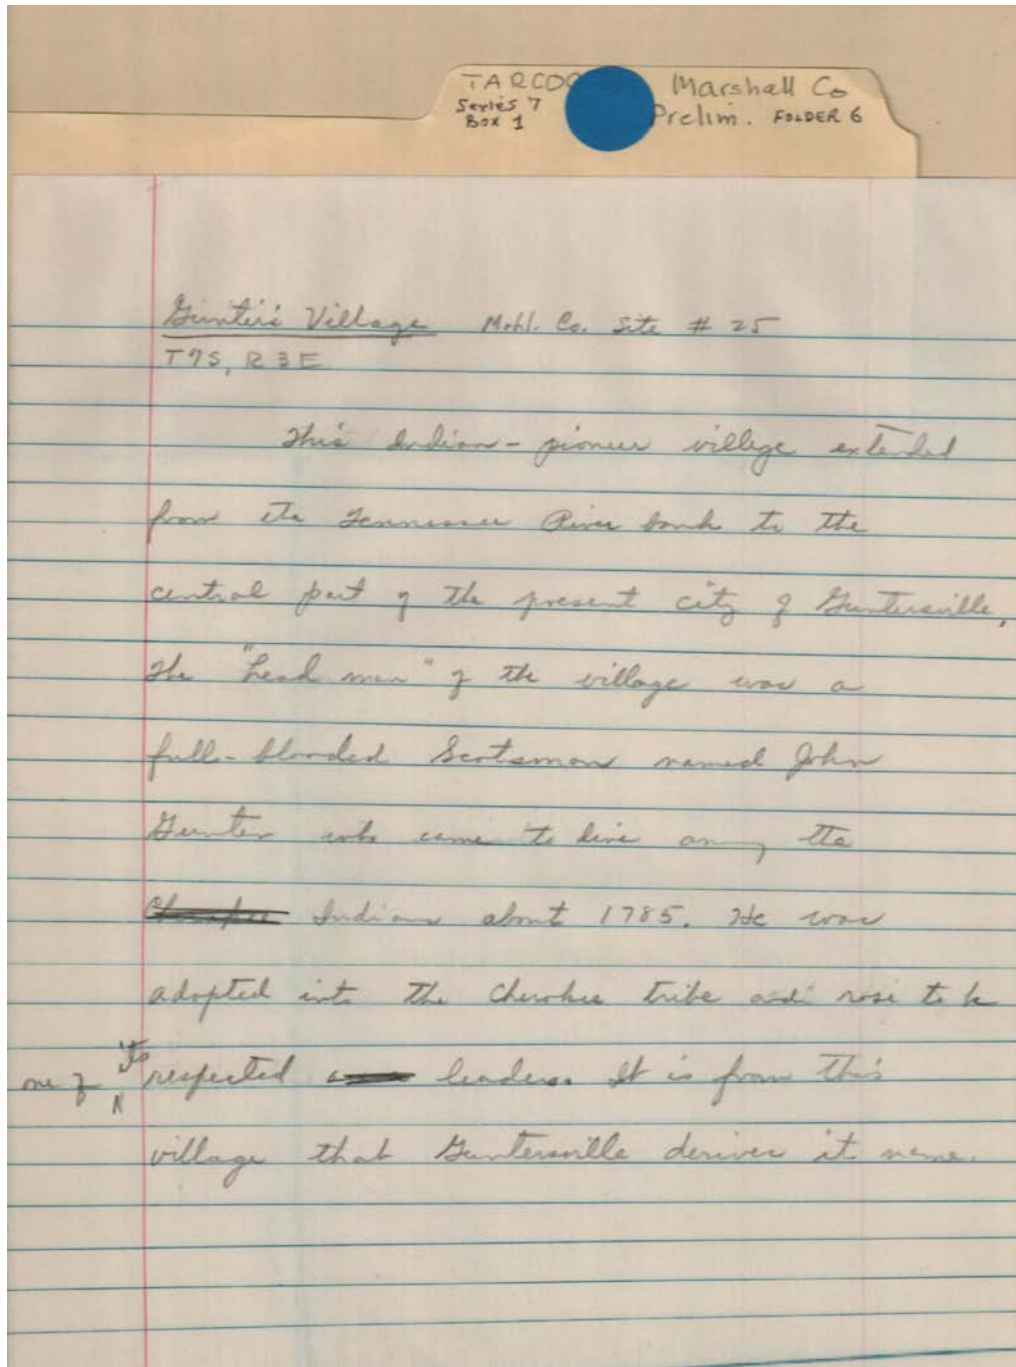 TARCOG Marshall Co
Series 7 Prelim. FOLDER 6
Box 1
Gunter's Village Mshl. Co. Site # 25
T7S, R3E
This Indian - pioneer village extended
from the Tennessee River bank to the
central part of the present city of Guntersville.
The "head man" of the village was a
full-blooded Scotsman named John
Gunter who came to live among the
Cherokee Indians about 1785. He was
adopted into the Cherokee tribe and rose to be
one of its respected leaders. It is from this
village that Guntersville derives it name.